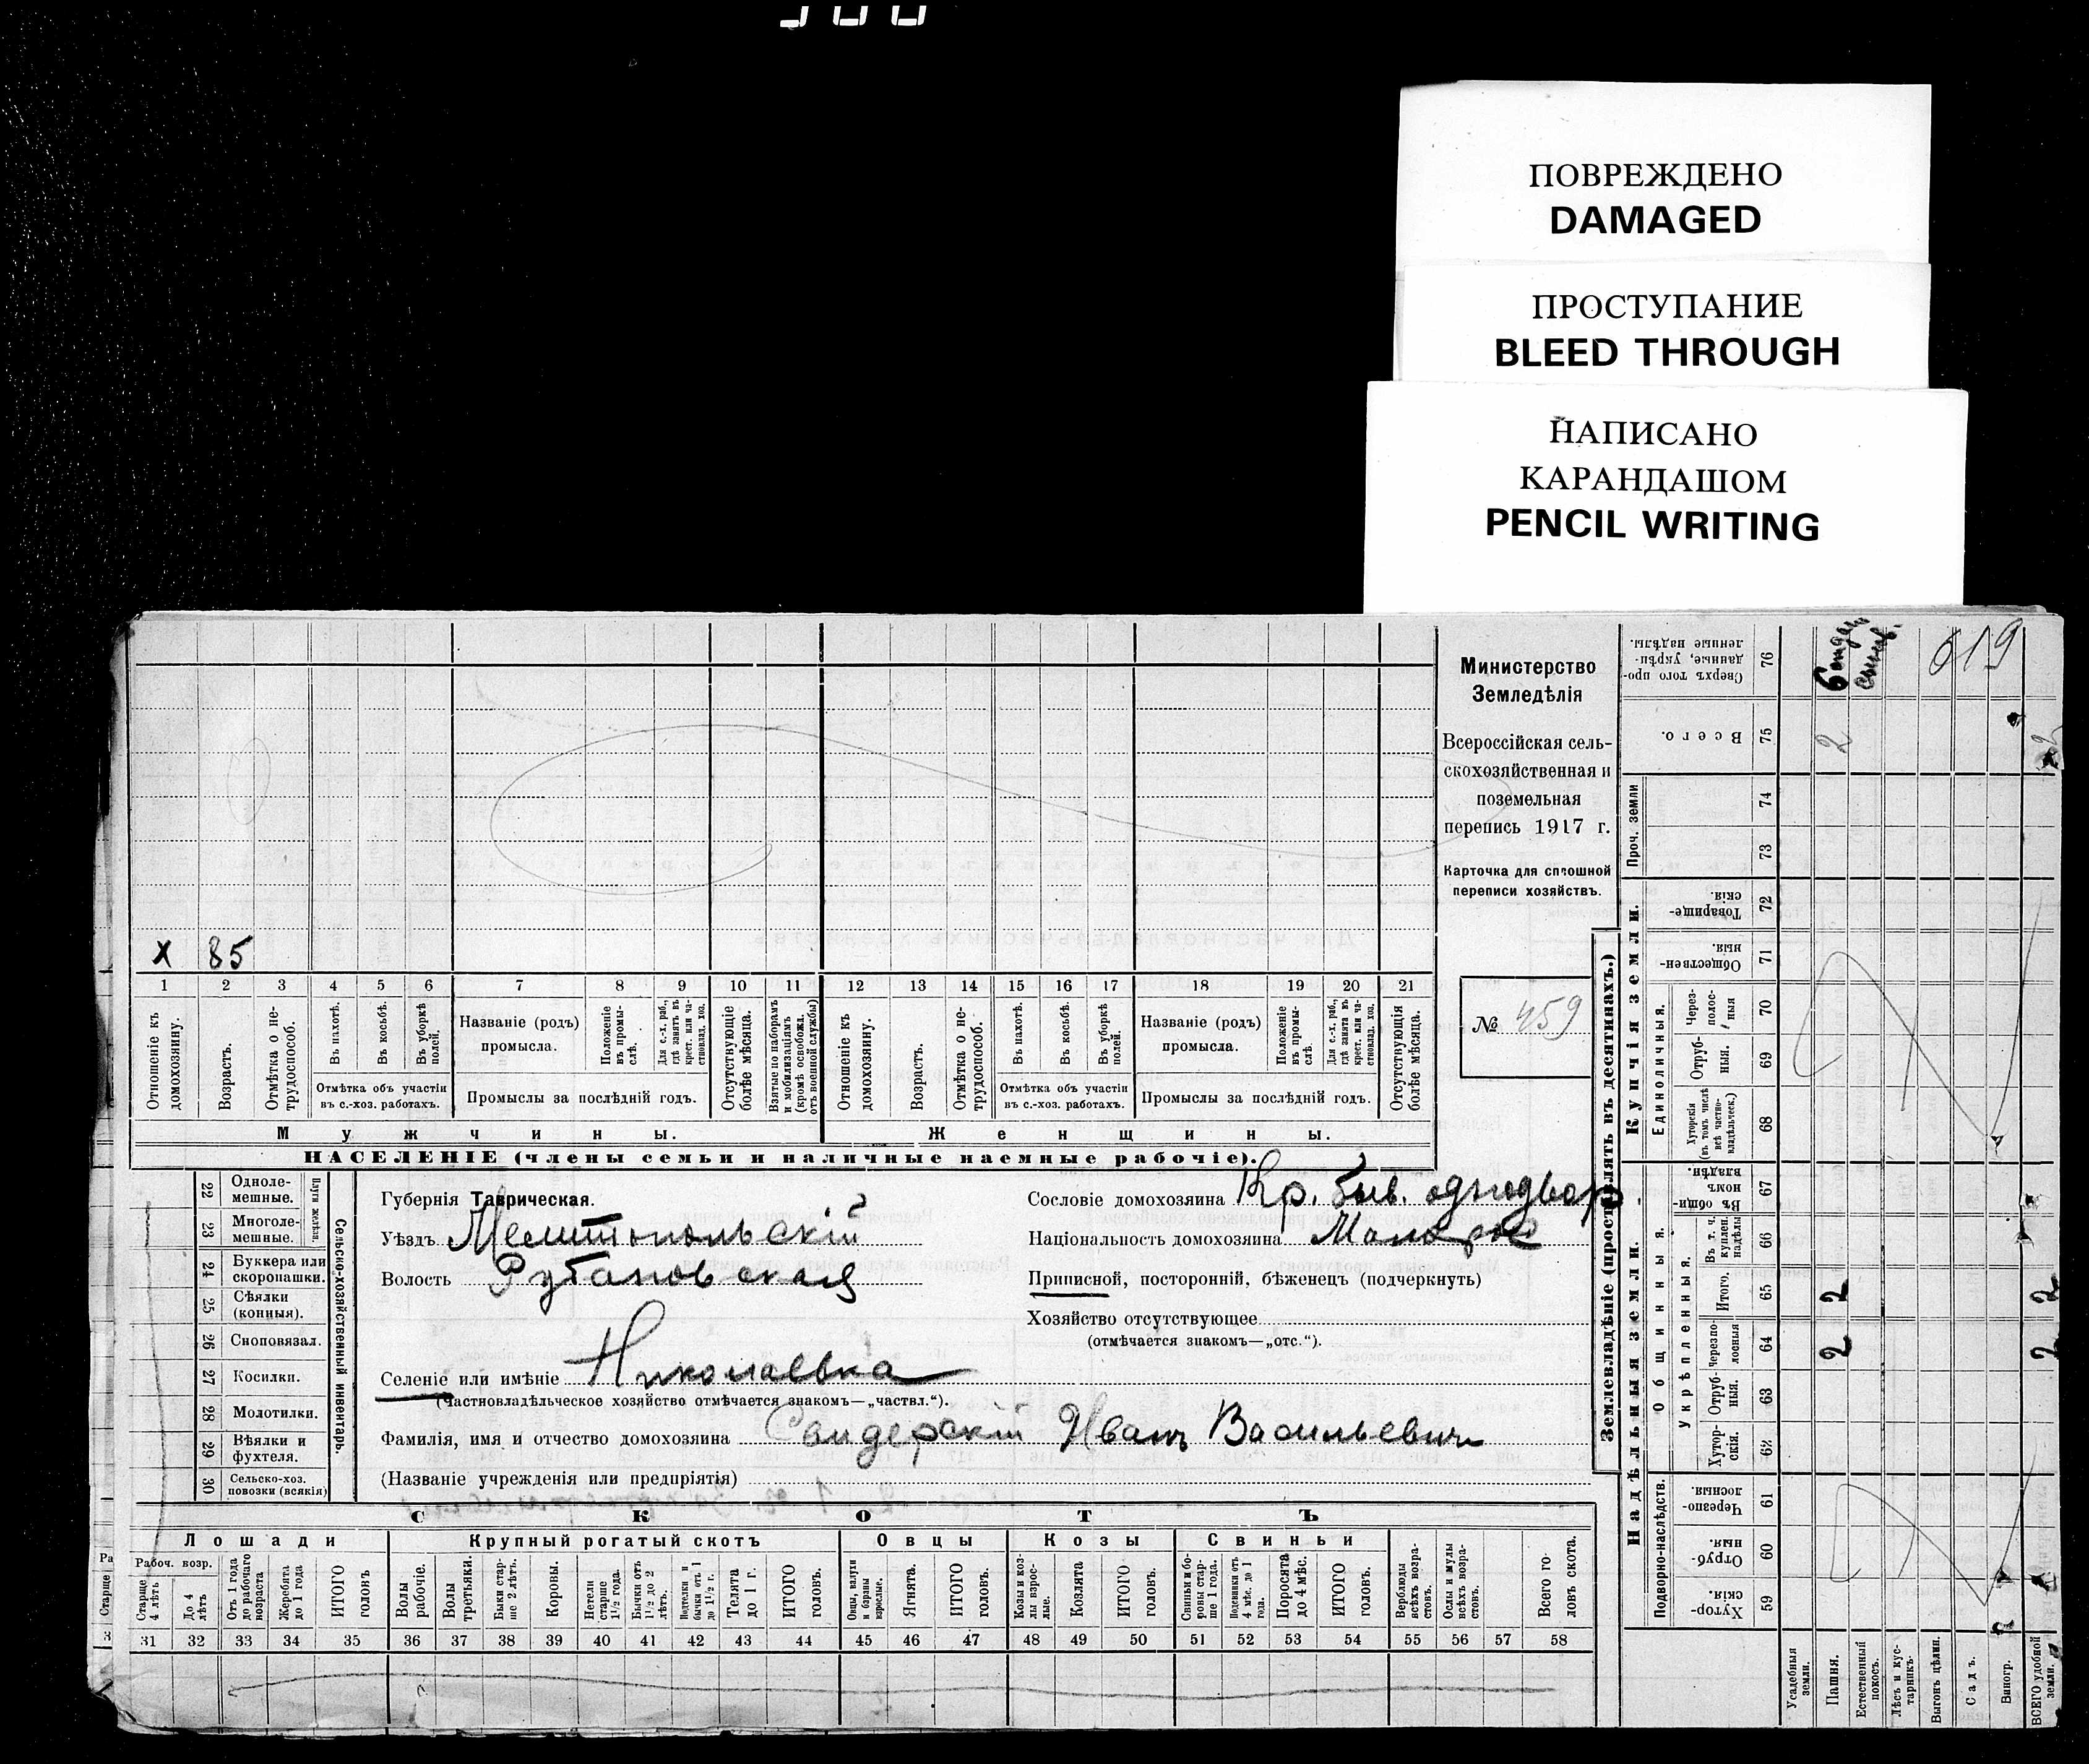 ПОВРЕЖДЕНО
DAMAGED
ПРОСТУПАНИЕ
BLEED THROUGH
НАПИСАНО
КАРАНДАШОМ
PENCIL WRITING
Министерство
Земледѣлія
Всероссійская сель-
скохозяйственная и
поземельная
перепись 1917 г.
Карточка для сплошной
переписи хозяйствъ.
№ 459
619
х 85
1 2 3 4 5 6 7 8 9 10 11 12 13 14 15 16 17 18 19 20 21
Отношеніе къ домохозяину.
Возрастъ.
Отмѣтка о не-трудоспособ.
Въ пахотѣ.
Въ косьбѣ.
Въ уборкѣ полей.
Отмѣтка объ участіи
въ с.-хоз. работахъ.
Названіе (родъ)
промысла.
Положеніе въ промы-слѣ.
Для с.-х. раб., гдѣ занятъ въ крест. или ча-стновлад. хоз.
Промыслы за послѣдній годъ.
Отсутствующіе болѣе мѣсяца.
Взятые по наборамъ и мобилизаціямъ (кромѣ освобожд. отъ военной службы)
Отношеніе къ домохозяину.
Возрастъ.
Отмѣтка о не-трудоспособ.
Въ пахотѣ.
Въ косьбѣ.
Въ уборкѣ полей.
Отмѣтка объ участіи
въ с.-хоз. работахъ.
Названіе (родъ)
промысла.
Положеніе въ промы-слѣ.
Для с.-х. раб., гдѣ занята въ крест. или ча-стновлад. хоз.
Промыслы за послѣдній годъ.
Отсутствующія болѣе мѣсяца.
Мужчины. Женщины.
НАСЕЛЕНІЕ (члены семьи и наличные наемные рабочіе).
22 Одноле-мешные.
23 Многоле-мешные.
Плуги желѣз.
24 Буккера или скоропашки.
25 Сѣялки (конныя).
26 Сноповязал.
27 Косилки.
28 Молотилки.
29 Вѣялки и фухтеля.
30 Сельско-хоз. повозки (всякія)
Сельско-хозяйственный инвентарь.
Губернія Таврическая.
Уѣздъ Мелитопольскій
Волость Рубановская
Селеніе или имѣніе Николаевка
(Частновладѣльческое хозяйство отмѣчается знакомъ—„частвл.“).
Фамилія, имя и отчество домохозяина Сандерскій Иванъ Васильевич
(Названіе учрежденія или предпріятія)
Сословіе домохозяина Кр. быв. однодвор
Національность домохозяина Малорос
Приписной, посторонній, бѣженецъ (подчеркнуть)
Хозяйство отсутствующее
(отмѣчается знакомъ—„отс.“).
СКОТЪ
Лошади Крупный рогатый скотъ Овцы Козы Свиньи
Рабоч. возр.
Старше 4 лѣтъ
До 4 лѣтъ
Отъ 1 года до рабочаго возраста
Жеребята до 1 года
ИТОГО головъ
Волы рабочіе.
Волы третьяки.
Быки стар-ше 2 лѣтъ.
Коровы.
Нетели старше 1½ года.
Бычки отъ 1½ до 2 лѣтъ.
Подтелки и бычки отъ 1 до 1½ г.
Телята до 1 г.
ИТОГО головъ.
Овцы, валухи и бараны взрослые.
Ягнята.
ИТОГО головъ.
Козы и коз-лы взрос-лые.
Козлята
ИТОГО головъ.
Свиньи и бо-ровы стар-ше 1 года.
Подсвинки отъ 4 мѣс. до 1 года.
Поросята до 4 мѣс.
ИТОГО головъ.
Верблюды всѣхъ возра-стовъ.
Ослы и мулы всѣхъ возра-стовъ.
Всего го-ловъ скота.
31 32 33 34 35 36 37 38 39 40 41 42 43 44 45 46 47 48 49 50 51 52 53 54 55 56 57 58
Землевладѣніе (проставлять въ десятинахъ.)
Надѣльныя земли.
Купчія земли.
Проч. земли
Подворно-наслѣдств.
Общинныя.
Укрѣпленныя.
Единоличныя.
76 Сверхъ того про-данные, укрѣп-ленные надѣлы.
75 Всего. 2
74
73
72 Товарище-скія.
71 Обществен-ныя.
70 Через-полос-ныя
69 Отруб-ныя.
68 Хуторскія (въ томъ числѣ всѣ частно-владѣльческ.)
67 Въ общин-номъ владѣн.
66 Въ т. ч. куплен. надѣлы
65 Итого. 2 2
64 Черезпо-лосныя 2 2
63 Отруб-ныя.
62 Хутор-скія.
61 Черезпо-лосныя
60 Отруб-ныя
59 Хутор-скія.
Усадебныя земли.
Пашня.
Естественный покосъ.
Лѣсъ и кус-тарникъ.
Выгонъ цѣлин.
Садъ.
Виногр.
ВСЕГО удобной земли.